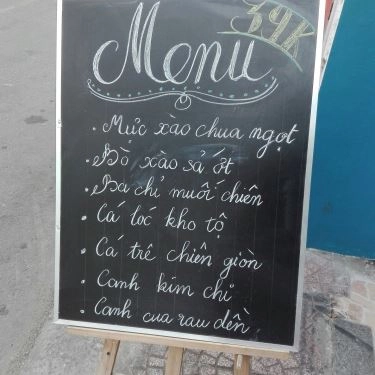 Menu 39K
• Mực xào chua ngọt
• Bò xào sả ớt
• Ba chỉ muối chiên
• Cá lóc kho tộ
• Cá trê chiên giòn
• Canh kim chi
• Canh cua rau dền